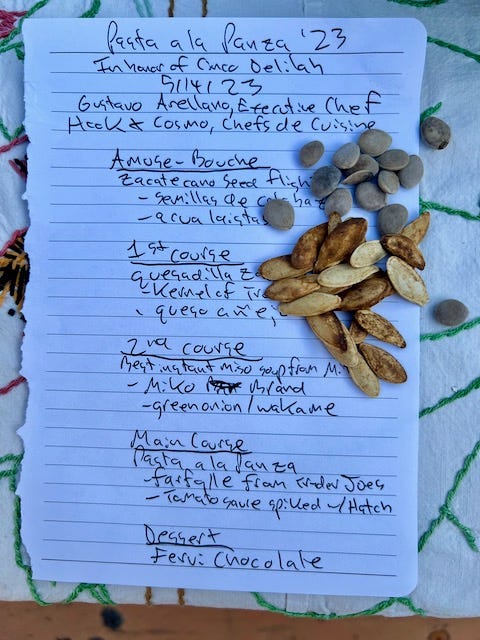 Pasta a la Panza '23
In honor of Cinco Delilah
5/14/23
Gustavo Arellano, Executive Chef
Hook & Cosmo, Chefs de Cuisine
Amuse-Bouche
Zacatecano seed fligh
- semillas de calabaz
- acualaistas
1st course
quesadilla Z
- Kernel of Tr
- queso añej
2nd course
Best instant miso soup from Mi
- Miko Brand
- green onion/wakame
Main Course
Pasta a la Panza
- farfalle from Trader Joes
- Tomato sauce spiked w/Hatch
Dessert
Fervi Chocolate